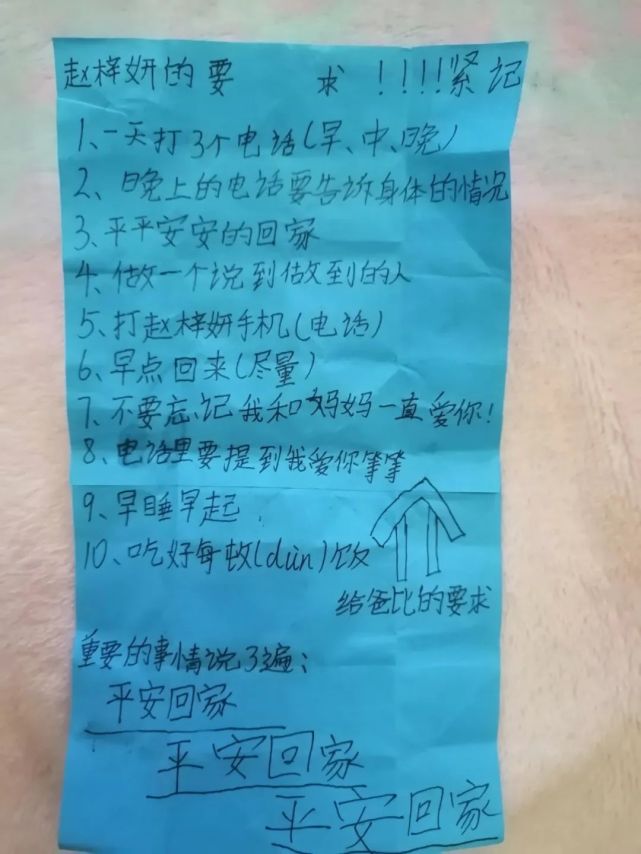 赵梓妍的要 求!!!!紧记
1、一天打3个电话(早、中、晚)
2、晚上的电话要告诉身体的情况
3、平平安安的回家
4、做一个说到做到的人
5、打赵梓妍手机(电话)
6、早点回来(尽量)
7、不要忘记我和妈妈一直爱你!
8、电话里要提到我爱你等等
9、早睡早起.
10、吃好每顿(dùn)饭
给爸比的要求
重要的事情说3遍:
平安回家
平安回家
平安回家